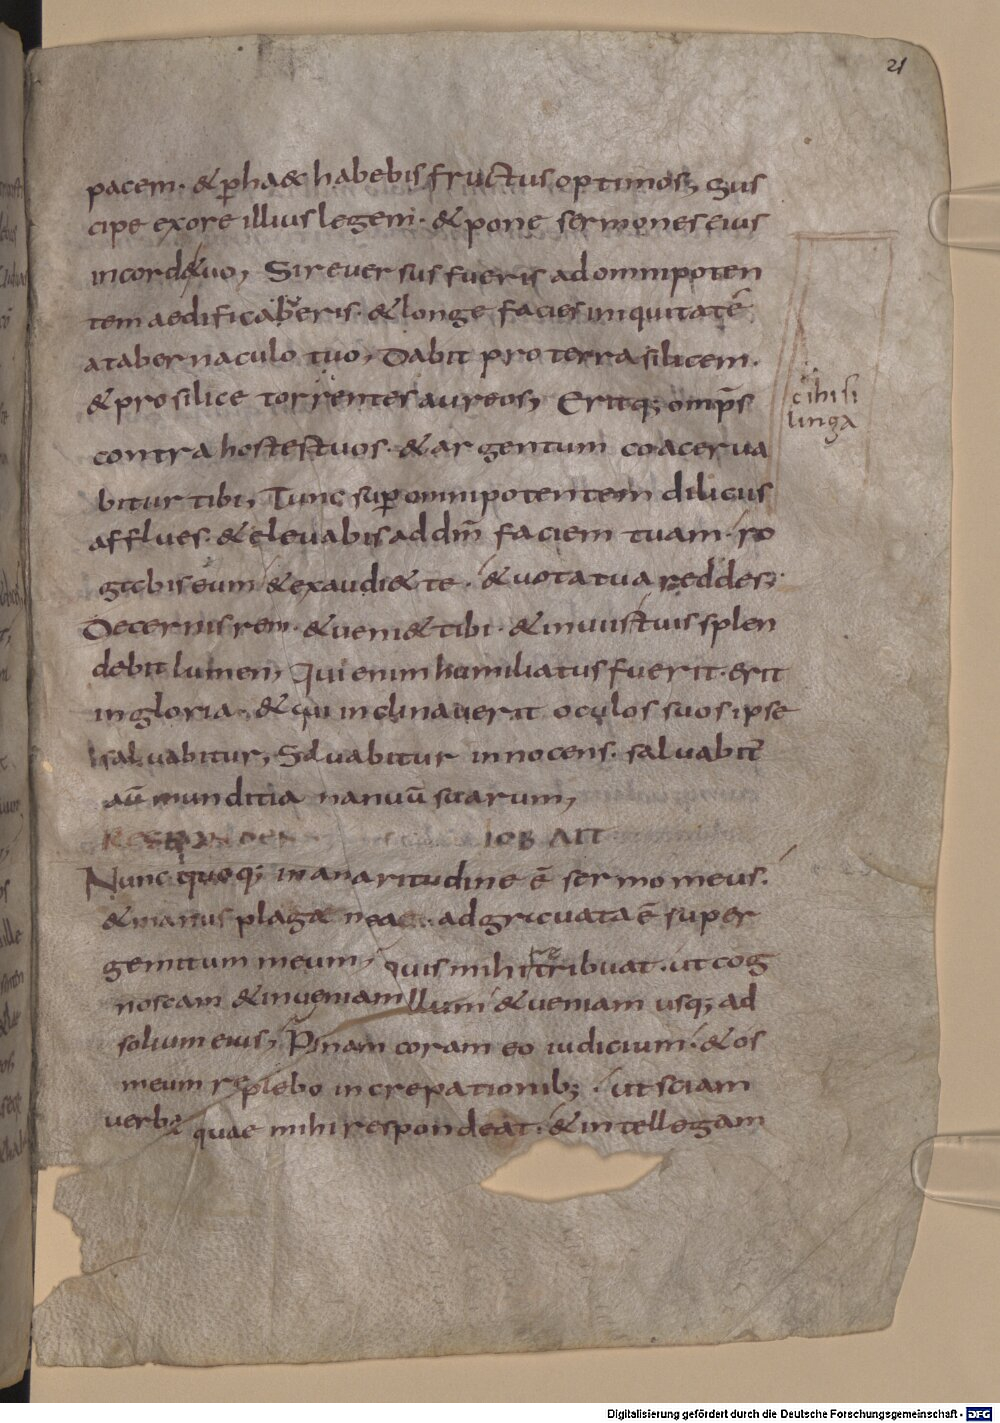 21
pacem · & p̱ haec habebis fructus optimos; Sus
cipe ex ore illius legem · & pone sermones eius
in corde tuo, Si reuersus fueris ad omnipoten
tem aedificaberis · & longe facies iniquitatē
a tabernaculo tuo, Dabit pro terra silicem ·
& pro silice torrentes aureos, Eritq; omnip̄s
contra hostes tuos · & argentum coacerua
cihisi
linga
bitur tibi, Tunc sup̱ omnipotentem dilicus
afflues · & eleuabis ad dm̄ faciem tuam · ro
gabis eum & exaudi& te · & uota tua reddes;
Decernis rem · & ueni& tibi · & in uiis tuis splen
debit lumen, Qui enim humiliatus fuerit · erit
in gloria · & qui inclinauerit oculos suos ipse
saluabitur, Saluabitur innocens · saluabit̄
aū munditia manuū suarum,
RESPONDEN IOB AIT
Nunc quoq; in amaritudine ē sermo meus ·
& manus plagae meae · adgrauata ē super
gemitum meum, Quis mihi tribuat · ut cog
noscam & inueniam illum & ueniam usq; ad
solium eius, Ponam coram eo iudicium · & os
meum replebo increpationib; · ut sciam
verba quae mihi respondeat · & intellegam
Digitalisierung gefördert durch die Deutsche Forschungsgemeinschaft - DFG